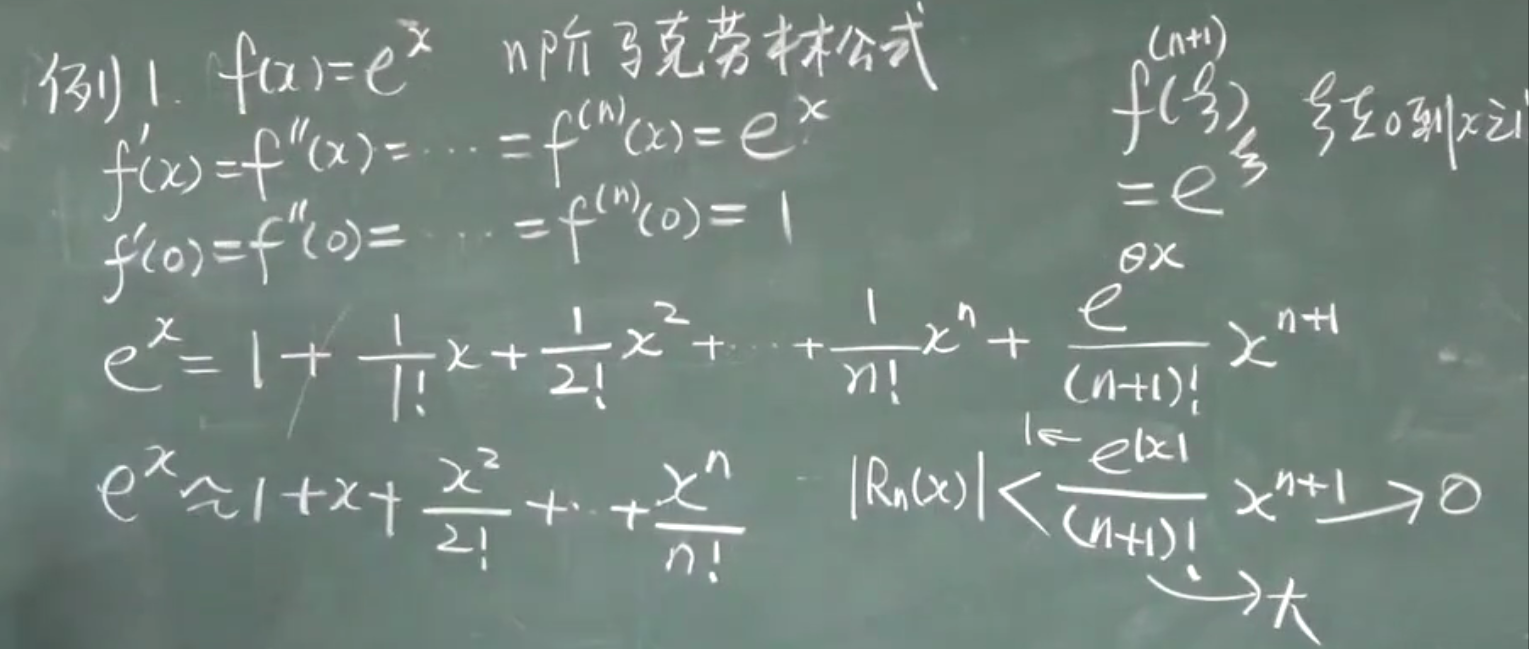 例1. f(x)=e^x n阶马克劳林公式
f'(x)=f''(x)=⋯=f^(n)(x)=e^x
f'(0)=f''(0)=⋯=f^(n)(0)=1
f^(n+1)(ξ) ξ在0到x之
=e^ξ
e^x=1+\frac{1}{1!}x+\frac{1}{2!}x^2+⋯+\frac{1}{n!}x^n+\frac{e^{θx}}{(n+1)!}x^{n+1}
e^x≈1+x+\frac{x^2}{2!}+⋯+\frac{x^n}{n!} |R_n(x)|<\frac{e^{|x|}}{(n+1)!}x^{n+1}→0
1←
→大